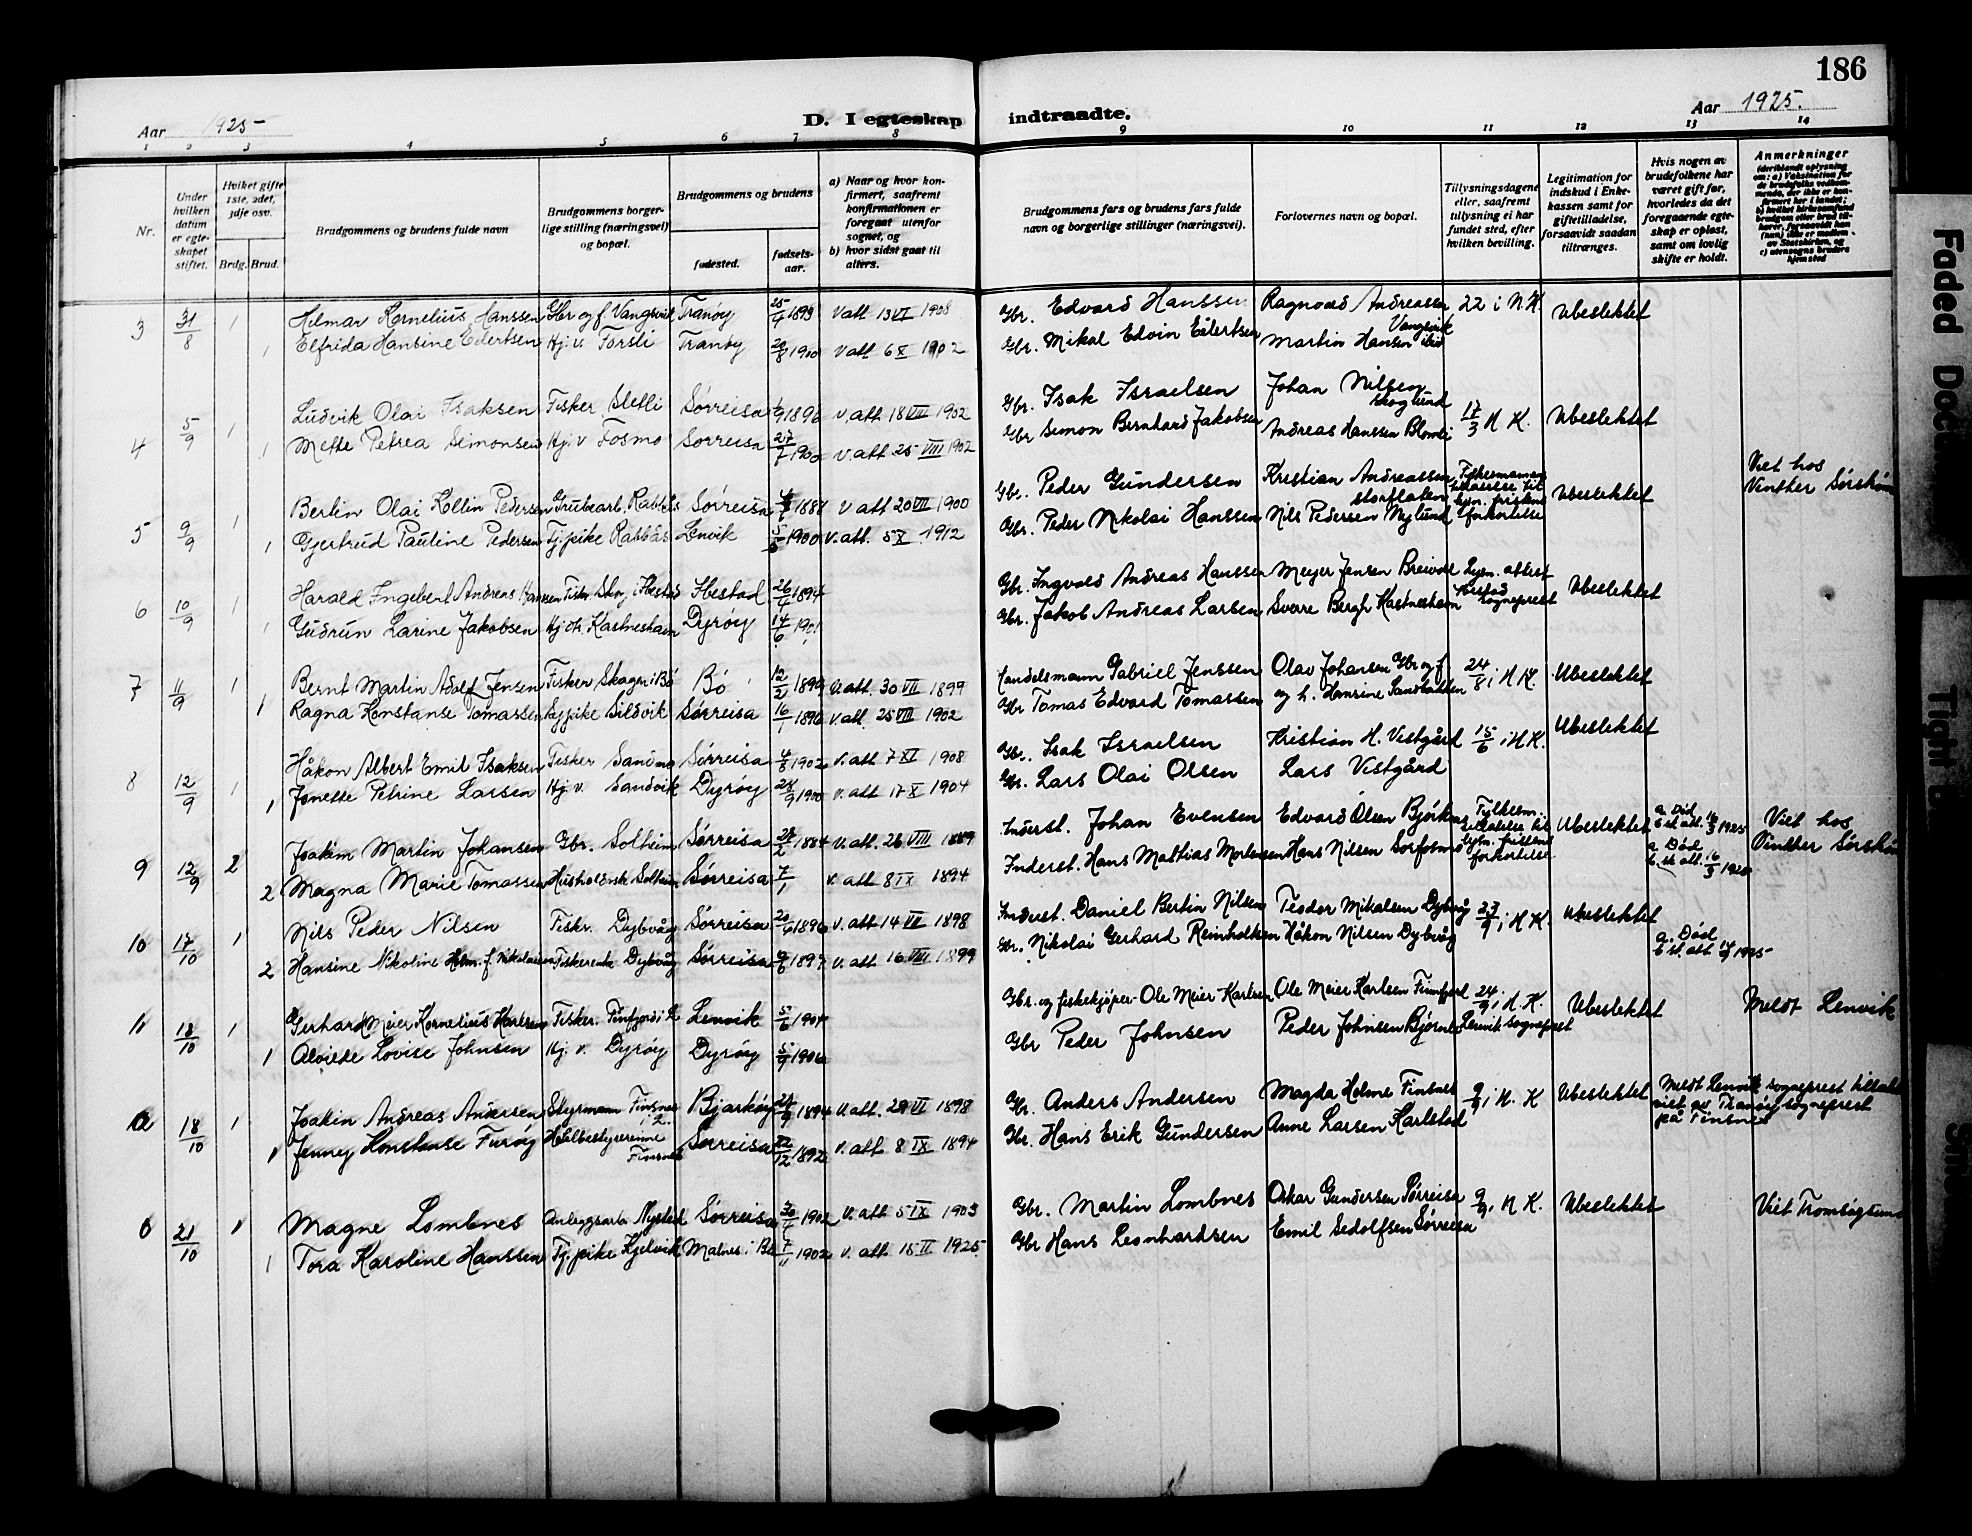 186
Aar 1925-
D. I egteskap indtraadte.
Aar 1925.
1 2 3 4 5 6 7 8 9 10 11 12 13 14
Nr.
Under hvilken datum er egteskapet stiftet.
Hviket gifte 1ste, 2det, 3dje osv.
Brdg. Brud.
Brudgommens og brudens fulde navn
Brudgommens borgerlige stilling (næringsvei) og bopæl.
Brudgommens og brudens
fødested.
fødselsaar.
a) Naar og hvor konfirmert, saafremt konfirmationen er foregaat utenfor sognet, og
b) hvor sidst gaat til alters.
Brudgommens fars og brudens fars fulde navn og borgerlige stillinger (næringsvei).
Forlovernes navn og bopæl.
Tillysningsdagene eller, saafremt tillysning ei har fundet sted, efter hvilken bevilling.
Legitimation for indskud i Enkekassen samt for giftetilladelse, forsaavidt saadan tiltrænges.
Hvis nogen av brudefolkene har været gift før, hvorledes da det foregaaende egteskap er opløst, samt om lovlig skifte er holdt.
Anmerkninger
3 31/8 1 Hilmar Kornelius Hanssen Gbr og f. Vangsvik Tranøy 25/4 1893 v att 13 VI 1908 Gbr. Edvard Hanssen Ragnvard Andreassen Vangsvik 22 i N.K. Ubeslektet
1 Elfrida Hansine Edertsen Hj. v. Forsli Tranøy 20/8 1900 v att 6 X 1902 Gbr. Mikal Edvin Eilertsen Martin Hansen ibid
4 5/9 1 Ludvik Olai Isaksen Fisker Sletli Sørreisa 1896 v. att 18 VIII 1902 Gbr. Isak Israelsen Johan Nilsen Skoglund 17/3 N K. Ubeslektet
1 Mette Petrea Simonsen Hj. v Fosmo Sørreisa 27/7 1900 v. att 25 VIII 1902 Gbr Simon Bernhard Jakobsen Andreas Hanssen Blomli
5 9/9 1 Berlin Olai Kollin Pedersen Grubearb. Rabbås Sørreisa 1887 v att 20 VII 1900 Gbr. Peder Gundersen Kristian Andreassen Storflaten Ubeslektet Viet hos Vinther Sørskåm
1 Gjertrud Pauline Pedersen Tj.pike Rabbås Lenvik 1900 v. att. 5 X 1912 Gbr. Peder Nikolai Hanssen Nils Pedersen Nylund
6 10/9 1 Harald Ingebert Andreas Hanssen Fisker Ibestad 26/4 1894 Gbr. Ingvald Andreas Hanssen Meyer Jensen Breivoll Lysn. attest Ibestad sogneprest Ubeslektet
1 Gudrun Larine Jakobsen Hj. dt. Kastneshamn Dyrøy 14/6 1901 Gbr. Jakob Andreas Larsen Sverre Bergh Kastneshamn
7 11/9 1 Bernt Martin Adolf Jensen Fisker Skagen i Bø Bø 12/2 v. att. 30 VII 1899 Handelsmann Gabriel Jenssen Olav Johansen Gbr og f. 24/8 i N K. Ubeslektet
1 Ragna Konstanse Tomassen Sypike Sildvik Sørreisa 16/1 1896 v. att. 25 VIII 1902 Gbr Tomas Edvard Tomassen og h. Hansine Sandbakken
8 12/9 1 Håkon Albert Emil Isaksen Fisker Sandnes Sørreisa 4/8 1902 v. att 7 XI 1908 Gbr. Isak Israelsen Kristian H. Vestgård 15/6 i N K. Ubeslektet
1 Jonette Petrine Larsen Hj. v. Sandvik Dyrøy 24/9 1900 v. att 17 X 1904 Gbr. Lars Olai Olsen Lars Vestgård
9 12/9 2 Joakim Martin Johansen Gbr. Solheim Sørreisa 1884 v. att. 26 VIII 1889 Inderst. Johan Evensen Edvard Olsen Bjørkas Ubeslektet a. Død b. sk att. 16/3 1925 Viet hos Vinther Sørskåm
2 Magna Marie Tomassen Husholdersk Solheim Sørreisa 7/1 v. att 8 IX 1894 Inderst. Hans Mathias Mortensen Hans Nilsen Sørfosmo a Død b. sk att. 16/3 1925
10 17/10 1 Nils Peder Nilsen Fisker. Dybvåg Sørreisa 20/4 1896 v. att 14 VII 1898 Inderst. Daniel Bertin Nilsen Teodor Mikalsen Dybvåg 27/9 i N K. Ubeslektet
2 Hansine Nikoline Nikolaisen Fiskerenke Dybvåg Sørreisa 1897 v. att 16 VIII 1899 Gbr. Nikolai Gerhard Reinholtsen Håkon Nilsen Dybvåg a. Død b. sk. att. 1925-
11 18/10 1 Gerhard Meier Kornelius Karlsen Fisker. Finfjord i L Lenvik 5/6 1904 Gbr. og fiskekjøper Ole Meier Karlsen Ole Meier Karlsen Finnfjord 24/9 i N. K. Lenvik sogneprest Ubeslektet Meldt Lenvik
1 Alvilde Lovise Johnsen Hj. v. Dyrøy Dyrøy 5/9 1906 Gbr Peder Johnsen Peder Johnsen
18/10 1 Joakin Andreas Andersen Styrmann Finsnes Bjarkøy 1894 v. att. 29 VI 1898 Gbr. Anders Andersen Magda Holme Finsnes 9/9 i N. K Ubeslektet Meldt Lenvik sogneprest viet av Tranøy sogneprest på Finsnes
1 Jenney Konstanse Furøy Finsnes Sørreisa 22/12 1892 v. att 8 IX 1894 Gbr. Hans Erik Gundersen Anne Larsen Karlstad
21/10 1 Magne Lombnes Anleggsarb. Nysted Sørreisa 1902 v. att 5 IX 1903 Gbr. Martin Lombnes Oskar Gundersen Sørreisa 9/9 i N K. Ubeslektet Viet Tromsøysund
1 Tora Karoline Hanssen Tj. pike Kjelvik Malnes i Bø 7/11 1902 v. att. 15 II 1925 Gbr Hans Leonhardsen Emil Sedolfsen Sørreisa
Faded Doc
Tight